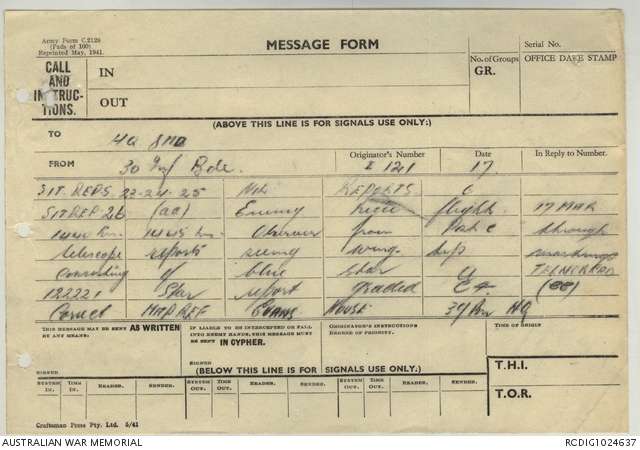 Army Form C.2128
(Pads of 100)
Reprinted May, 1941.
MESSAGE FORM
Serial No.
CALL AND INSTRUC-TIONS.
IN
OUT
No. of Groups
GR.
OFFICE DATE STAMP
(ABOVE THIS LINE IS FOR SIGNALS USE ONLY:)
TO
FROM 30 Inf Bde.
Originator's Number
121
Date
17
In Reply to Number.
SIT. REPS 23-24-25 REPORTS
SITREP 26 (aa) Enemy flight 17 MAR
1440 1445 Observer from through
telescope reports seeing wing markings
consisting of blue star
122221 Star report graded
Correct MAP REF EVANS HOUSE HQ
THIS MESSAGE MAY BE SENT AS WRITTEN BY ANY MEANS:
IF LIABLE TO BE INTERCEPTED OR FALL INTO ENEMY HANDS, THIS MESSAGE MUST BE SENT IN CYPHER.
ORIGINATOR'S INSTRUCTIONS
DEGREE OF PRIORITY.
TIME OF ORIGIN
SIGNED
SIGNED
(BELOW THIS LINE IS FOR SIGNALS USE ONLY:)
T.H.I.
T.O.R.
SYSTEM IN. TIME IN. READER. SENDER. SYSTEM OUT. TIME OUT. READER. SENDER. SYSTEM OUT. TIME OUT. READER. SENDER.
Craftsman Press Pty. Ltd. 6/41
AUSTRALIAN WAR MEMORIAL
RCDIG1024637